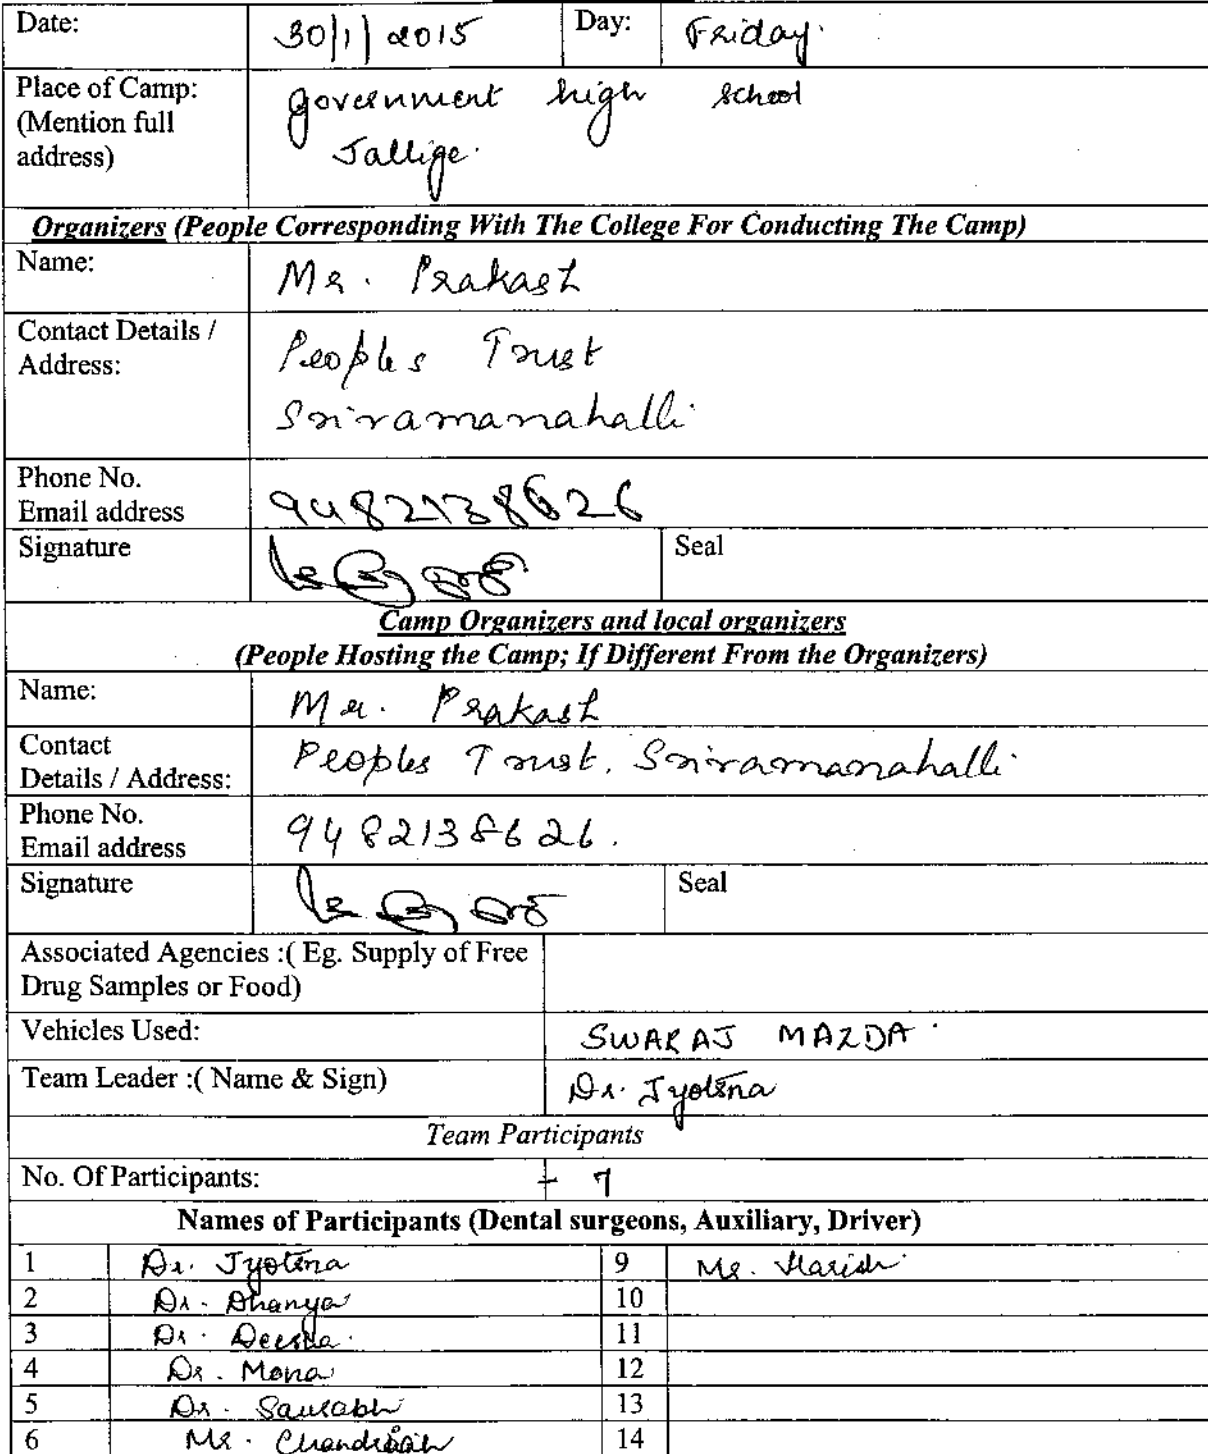 Date: 30/1/2015 Day: Friday.
Place of Camp: government high school
(Mention full Jallige.
address)
Organizers (People Corresponding With The College For Conducting The Camp)
Name: Mr. Prakash
Contact Details / Peoples Trust
Address: Sriramanahalli
Phone No.
Email address 9482138626
Signature Seal
Camp Organizers and local organizers
(People Hosting the Camp; If Different From the Organizers)
Name: Mr. Prakash
Contact Peoples Trust, Sriramanahalli
Details / Address:
Phone No. 9482138626.
Email address
Signature Seal
Associated Agencies :( Eg. Supply of Free
Drug Samples or Food)
Vehicles Used: SWARAJ MAZDA
Team Leader :( Name & Sign) Dr. Jyotsna
Team Participants
No. Of Participants: - 7
Names of Participants (Dental surgeons, Auxiliary, Driver)
1 Dr. Jyotsna 9 Mr. Harish
2 Dr. Dhanya 10
3 Dr. 11
4 Dr. Mona 12
5 Dr. Saurabh 13
6 Mr. 14